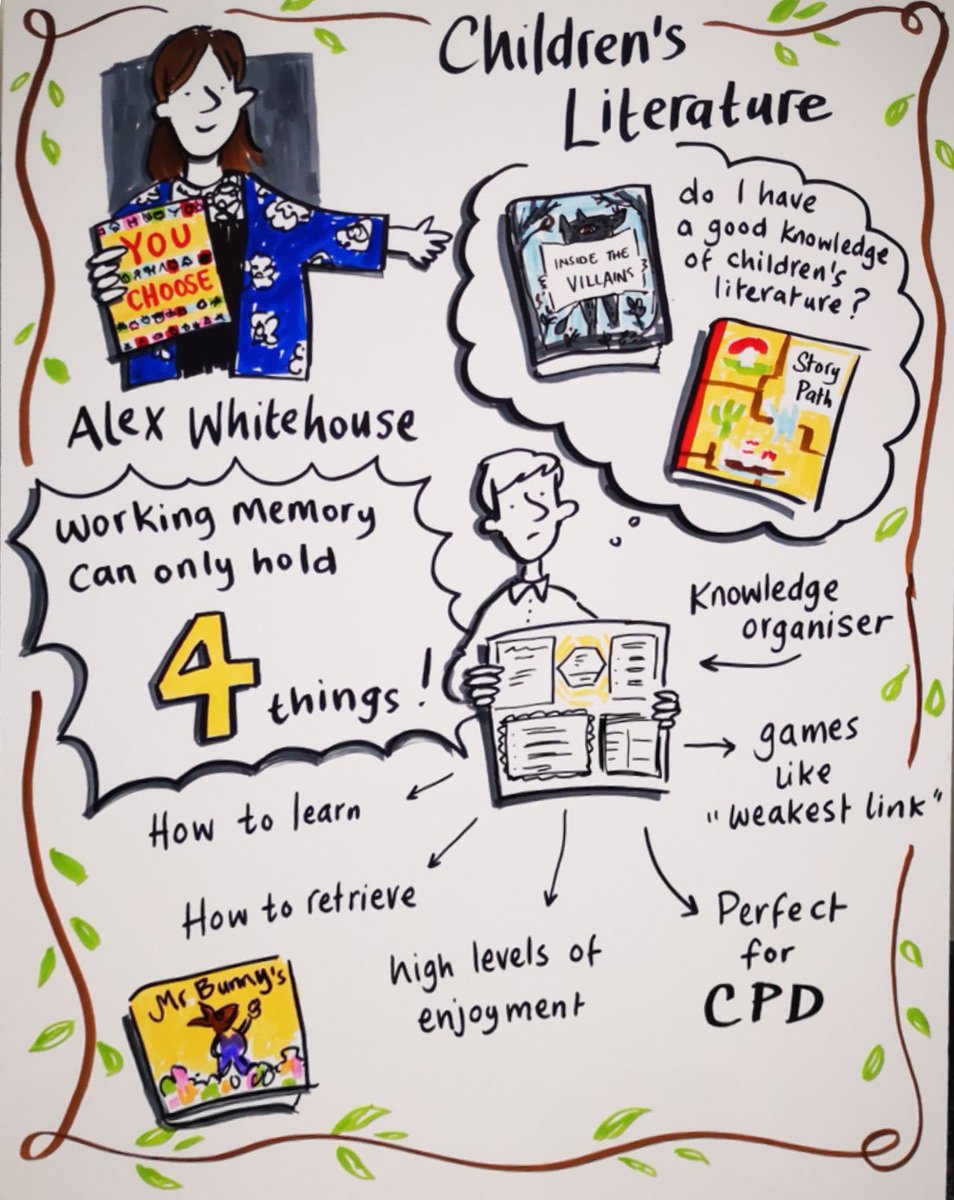 Children's
Literature
YOU
CHOOSE
do I have
a good knowledge
of children's
literature?
INSIDE THE
VILLAINS
Story
Path
Alex Whitehouse
working memory
can only hold
4 things!
Knowledge
organiser
games
like
"weakest link"
How to learn
How to retrieve
high levels of
enjoyment
Perfect
for
CPD
Mr. Bunny's